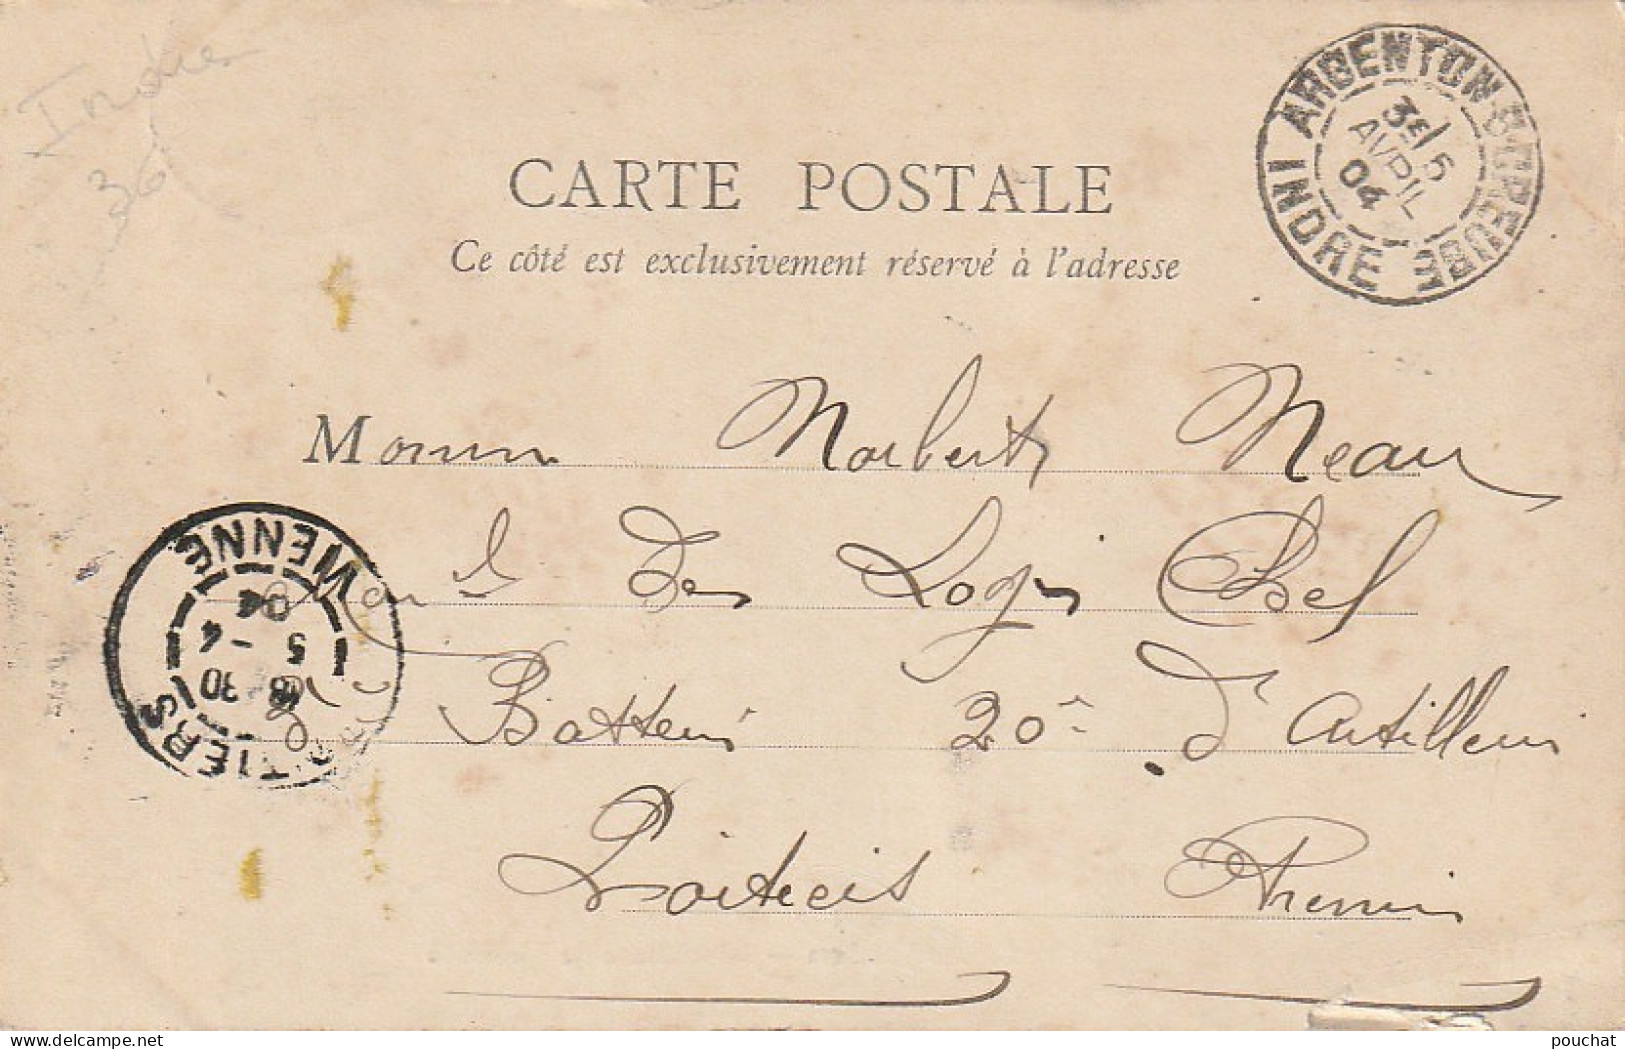 Indre
36
CARTE POSTALE
Ce côté est exclusivement réservé à l'adresse
ARGENTON-S-CREUSE
3E/ 5
AVRIL
04
INDRE
Monsieur Norbert Neau
Mal Des Logis Chef
Batterie 20e d'Artillerie
Poitiers Vienne
POITIERS
VIENNE
18 30
5 -4
04
pouchat
www.delcampe.net